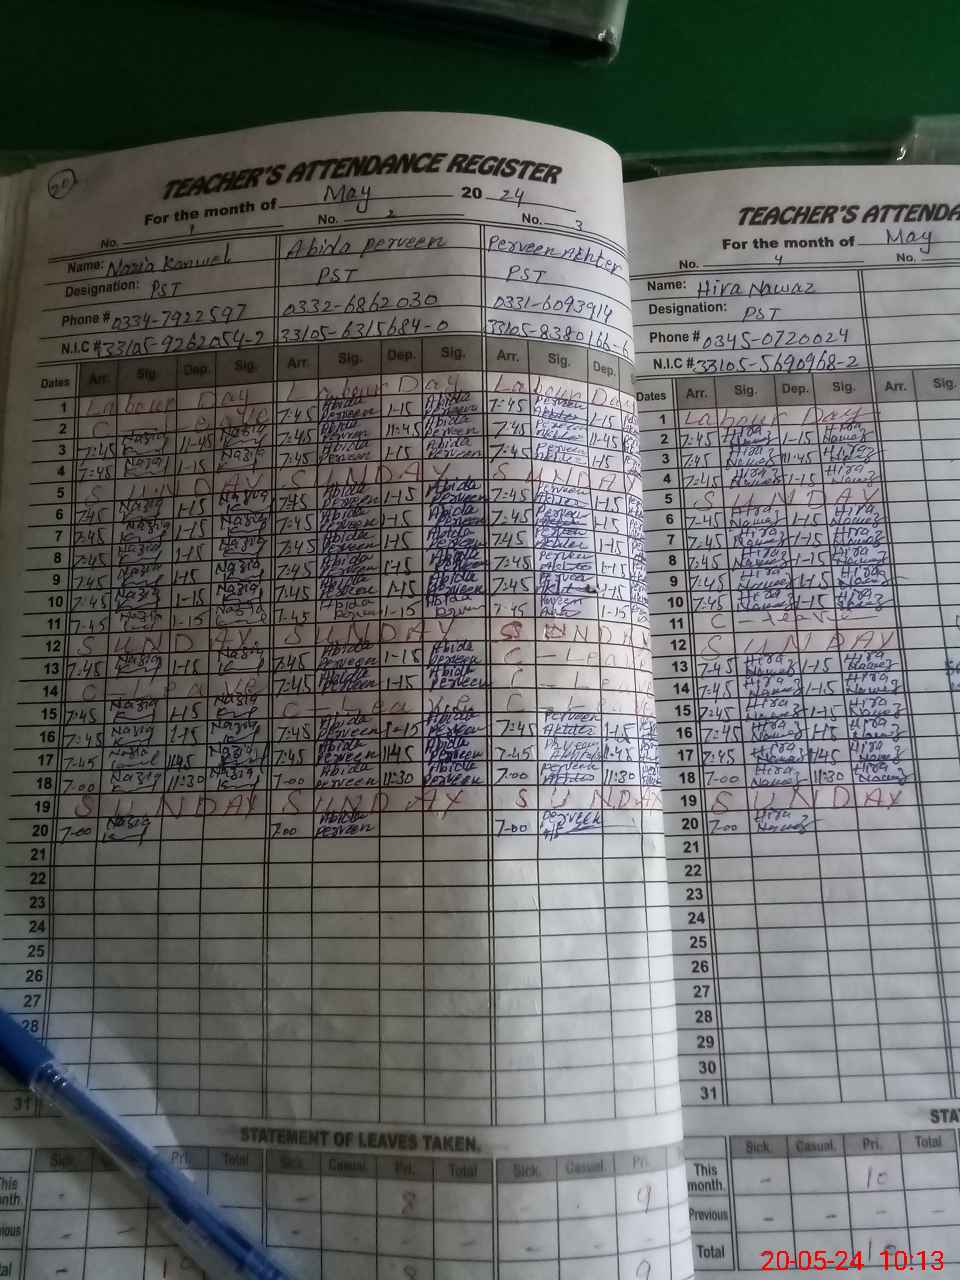 20
TEACHER'S ATTENDANCE REGISTER
For the month of May 20 24
No. 1 No. 2 No. 3
Name: Nazia Kanwel Abida Perveen Perveen Akhter
Designation: PST PST PST
Phone # 0334-7922597 0332-6862030 0331-6093914
N.I.C # 33105-9262054-2 33105-6315684-0 33105-8380166-6
Dates Arr. Sig. Dep. Sig. Arr. Sig. Dep. Sig. Arr. Sig. Dep.
1 Labour Day Labour Day Labour Day
2 C- 7:45 Abida Perveen 1-15 Abida Perveen 7:45 Perveen Akhter 1-15
3 7:45 Nazia 11-45 Nazia 7:45 Abida Perveen 11:45 Abida Perveen 7:45 Perveen 11-45
4 7:45 Nazia 1-15 Nazia 7:45 Abida Perveen 1-15 Abida Perveen 7:45 Perveen 1-15
5 SUNDAY SUNDAY SUNDAY
6 7:45 Nazia 1-15 Nazia 7:45 Abida Perveen 1-15 Abida Perveen 7:45 Perveen 1-15
7 7:45 Nazia 1-15 Nazia 7:45 Abida Perveen 1-15 Abida Perveen 7:45 Perveen 1-15
8 7:45 Nazia 1-15 Nazia 7:45 Abida Perveen 1-15 Abida Perveen 7:45 Perveen 1-15
9 7:45 Nazia 1-15 Nazia 7:45 Abida Perveen 1-15 Abida Perveen 7:45 Perveen 1-15
10 7:45 Nazia 1-15 Nazia 7:45 Abida Perveen 1-15 Abida Perveen 7:45
11 7:45 Nazia 1-15 Nazia 7:45 Abida Perveen 1-15 Abida Perveen 7:45 Perveen 1-15
12 SUNDAY SUNDAY SUNDAY
13 7:45 Nazia 1-15 Nazia 7:45 Abida Perveen 1-15 Abida Perveen C-Leave
14 C-Leave 7:45 Abida Perveen 1-15 Abida Perveen -Leave
15 7:45 Nazia 1-15 Nazia C-Leave C-Leave
16 7:45 Nazia 1-15 Nazia 7:45 Abida Perveen 1-15 Abida Perveen 7:45 Perveen Akhter 1-15
17 7:45 Nazia 11:45 Nazia 7:45 Abida Perveen 11:45 Abida Perveen 7:45 Perveen Akhter 11:45
18 7:00 Nazia 11:30 Nazia 7:00 Abida Perveen 11:30 Abida Perveen 7:00 Perveen Akhter 11:30
19 SUNDAY SUNDAY SUNDAY
20 7-00 Nazia 7:00 Abida Perveen 7-00 Perveen
21
22
23
24
25
26
27
28
31
STATEMENT OF LEAVES TAKEN.
Sick. Pri. Total Sick. Casual. Pri. Total Sick. Casual. Pri.
This month. - - 8 9
8 9
TEACHER'S ATTENDA
For the month of May
No. 4 No.
Name: Hira Nawaz
Designation: PST
Phone # 0345-0720024
N.I.C # 33105-5690968-2
Dates Arr. Sig. Dep. Sig. Arr. Sig.
1 Labour Day
2 7:45 Hira Nawaz 1-15 Hira Nawaz
3 7:45 Hira Nawaz 11:45 Hira Nawaz
4 7:45 Hira Nawaz 1-15 Hira Nawaz
5 SUNDAY
6 7-45 Hira Nawaz 1-15 Hira Nawaz
7 7:45 Hira Nawaz 1-15 Hira Nawaz
8 7:45 Hira Nawaz 1-15 Hira Nawaz
9 7:45 Hira Nawaz 1-15 Hira Nawaz
10 7:45 Hira Nawaz 1-15 Hira Nawaz
11 C-Leave
12 SUNDAY
13 7-45 Hira Nawaz 1-15 Hira Nawaz
14 7:45 Hira Nawaz 1-15 Hira Nawaz
15 7:45 Hira Nawaz 1-15 Hira Nawaz
16 7:45 Hira Nawaz 1-15 Hira Nawaz
17 7:45 Hira Nawaz 11:45 Hira Nawaz
18 7-00 Hira Nawaz 11:30 Hira Nawaz
19 SUNDAY
20 7-00 Hira Nawaz
21
22
23
24
25
26
27
28
29
30
31
STA
Sick. Casual. Pri. Total
This month. - 10
Previous - - - -
Total 10
20-05-24 10:13